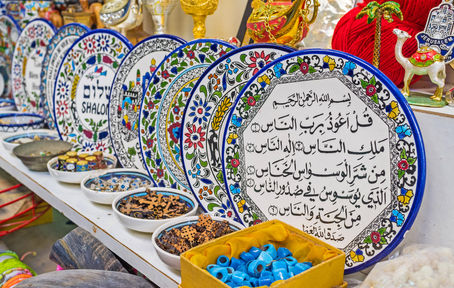 بسم الله الرحمن الرحيم
قل أعوذ برب الناس ①
ملك الناس ② إله الناس ③
من شر الوسواس الخناس ④
الذي يوسوس في صدور الناس ⑤
من الجنة والناس ⑥
صدق الله العظيم
שלום
SHALOM